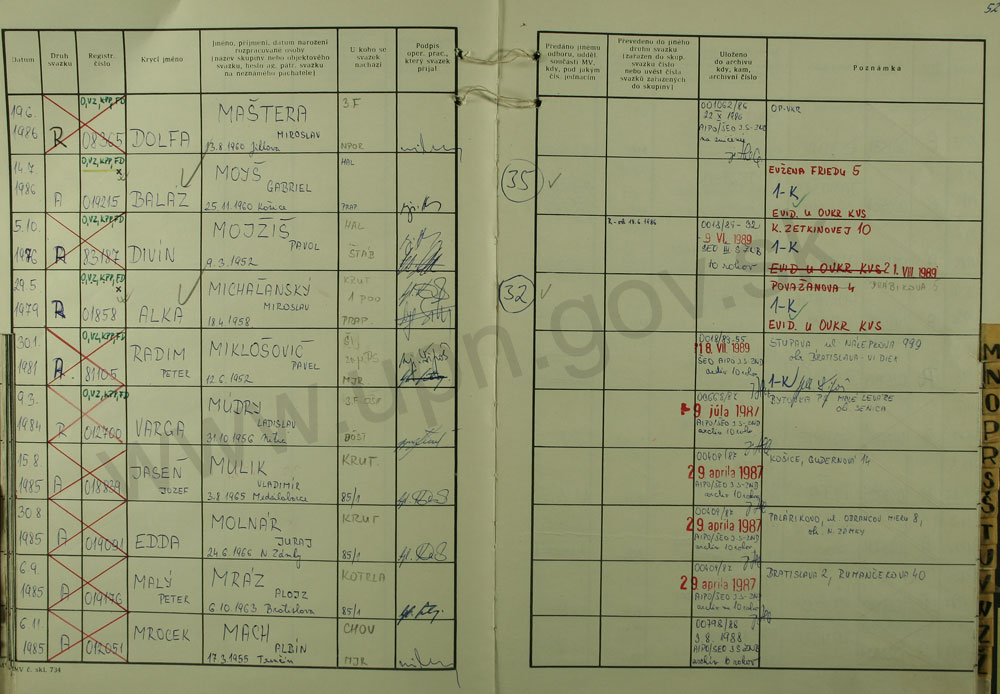 52
Datum
Druh svazku
Registr. číslo
Krycí jméno
Jméno, příjmení, datum narození rozpracované osoby
(název skupiny nebo objektového svazku, heslo ag. pátr. svazku na neznámého pachatele)
U koho se svazek nachází
Podpis oper. prac., který svazek přijal
Předáno jinému odboru, odděl. součásti MV, kdy, pod jakým čís. jednacím
Převedeno do jiného druhu svazku (zařazen do skup. svazku číslo nebo uvést čísla svazků zařazených do skupiny)
Uloženo do archivu kdy, kam, archivní číslo
Poznámka
19.6. 1986 R O,VZ,KPP,FD 08365 DOLFA
MAŠTERA
MIROSLAV
13.8.1960 Jihlava
3F
NPOR.
001062/86
22 X 1986
AIPO/SEO
OP-VKR
14.7. 1986 A O,VZ,KPP,FD 019215 BALÁŽ
MOYŠ
GABRIEL
25.11.1960 Košice
HAL
PRAP.
35
EUŽENA FRIEDU 5
1-K
EVID. U OVKR KVS
5.10. 1976 A O,VZ,KPP,FD 83187 DIVÍN
MOJŽIŠ
PAVOL
9.3.1952
HAL
ŠTÁB
R - od 18.6.1986
- 9 VI. 1989
10 rokov
K. ZETKINOVEJ 10
1-K
EVID U OVKR KVS 21. VIII. 1989
29.5 1979 R O,VZ,KPP,FD 01858 ALKA
MICHALANSKÝ
MIROSLAV
18.4.1958
KRUT
1 POO
PRAP.
32
POVAŽANOVA 4
1-K
EVID. U OVKR KVS
30.1. 1981 A O,VZ,KPP,FD 81105 RADIM
PETER
MIKLOŠOVIČ
PAVEL
12.6.1952
MJR.
18. VII. 1989
archiv 10 rokov
STUPAVA ul NÁLEPKOVA 999
ok. BRATISLAVA-VIDIEK
1-K
9.3. 1984 R O,VZ,KPP,FD 012700 VARGA
MÚDRY
LADISLAV
31.10.1956 Nitra
9 júla 1987
AIPO/SEO
archiv 10 rokov
MALÉ LEVÁRE
ok. SENICA
15.8. 1985 A 018829 JASEŇ
JOZEF
MULIK
VLADIMÍR
3.8.1965 Medzilaborce
KRUT.
85/1
00408/87
29 apríla 1987
AIPO/SEO
archiv 10 rokov
KOŠICE, GUDERNOVÁ 14
30.8 1985 A 019091 EDDA
MOLNÁR
JURAJ
24.6.1966 N. Zámky
KRUT
85/1
00409/87
29 apríla 1987
AIPO/SEO
archiv 10 rokov
PALÁRIKOVO, ul OBRANCOV MIERU 8,
ok. N. ZÁMKY
6.9. 1985 A 019176 MALÝ
PETER
MRÁZ
ALOJZ
6.10.1963 Bratislava
KOTRLA
85/1
29 apríla 1987
AIPO/SEO
archiv 10 rokov
BRATISLAVA 2, RUMANČEKOVA 40
6.11. 1985 A 012051 MROCEK
MACH
ALBÍN
17.3.1955 Trenčín
CHOV
MJR
00798/88
3.8. 1988
AIPO/SEO
archiv 10 rokov
MV č. skl. 734
www.upn.gov.sk
M
N
O
P
R
Š
T
U
V
Z
Ž